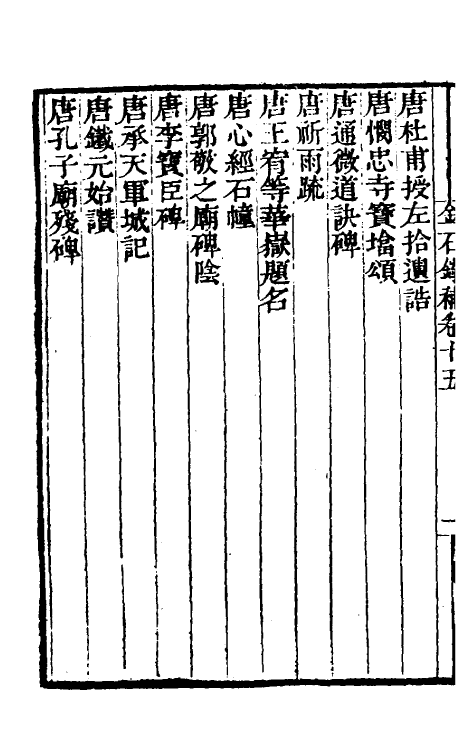 金石錄補卷十五
唐杜甫授左拾遺誥
唐憫忠寺寶塔頌
唐通微道訣碑
唐祈雨疏
唐王宥等華嶽題名
唐心經石幢
唐郭敬之廟碑陰
唐李寶臣碑
唐承天軍城記
唐鐵元始讚
唐孔子廟殘碑